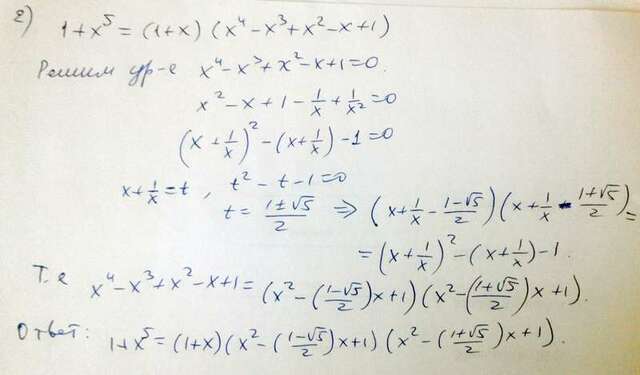 г) 1+x⁵ = (1+x) (x⁴-x³+x²-x+1)
Решим ур-е x⁴-x³+x²-x+1=0.
x²-x+1-1/x+1/x²=0
(x+1/x)²-(x+1/x)-1=0
x+1/x=t, t²-t-1=0
t=(1±√5)/2 ⇒ (x+1/x-(1-√5)/2)(x+1/x-(1+√5)/2)=
=(x+1/x)²-(x+1/x)-1.
Т.е x⁴-x³+x²-x+1=(x²-((1-√5)/2)x+1)(x²-((1+√5)/2)x+1).
Ответ: 1+x⁵=(1+x)(x²-((1-√5)/2)x+1)(x²-((1+√5)/2)x+1).